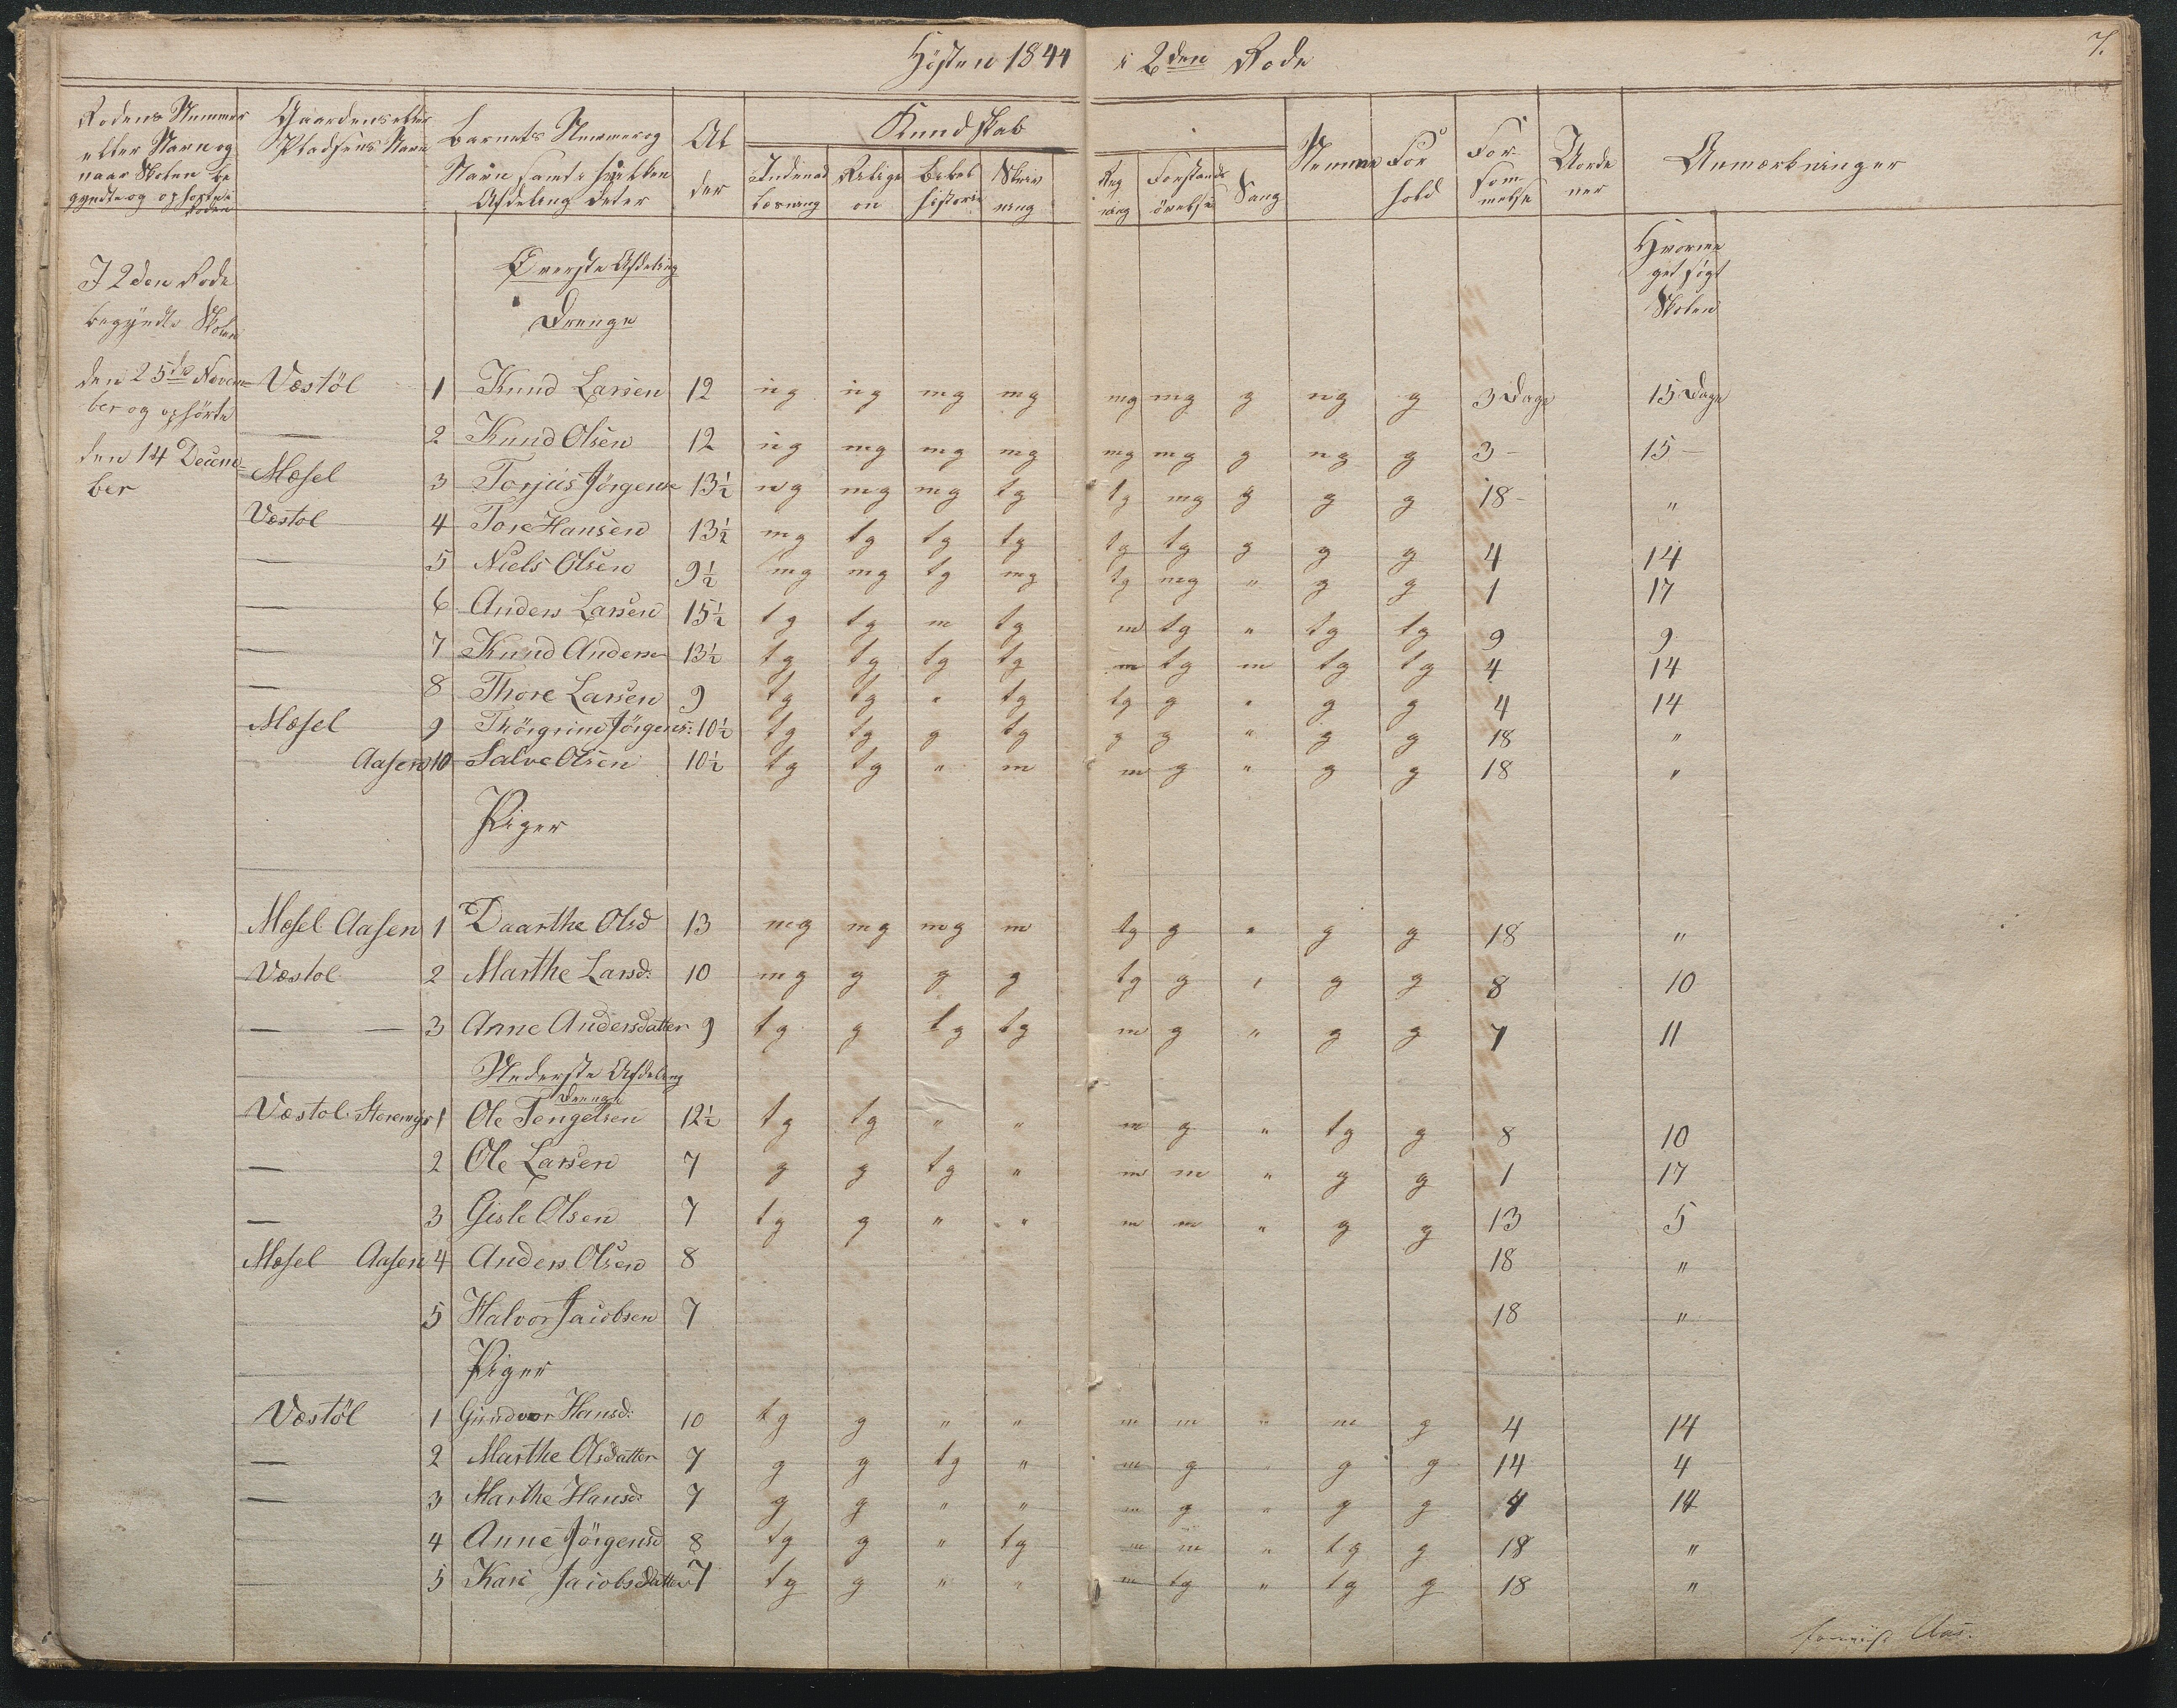 Høsten 1844 i 2den Rode
7.
Rodens Nummer eller Navn og naar Skolen begyndte og ophørte i Roden
Gaardens eller Pladsens Navn
Barnets Nummer og Navn samt i hvilken Afdeling det er
Alder
Kundskab
Indenadlæsning
Religion
Bibelhistorie
Skrivning
Regning
Forstandsøvelse
Sang
Nemme
Forhold
Forsømmelse
Uordener
Anmærkninger
I 2den Rode
begyndte Skolen
den 25de Novem-
ber og ophørte
den 14 Decem-
ber
Øverste Afdeling
Drenge
Hvorme
get søgt
Skolen
Vestöl 1 Knud Larsen 12 ug ug mg mg mg mg g ng g 3 Dage 15 Dage
— 2 Knud Olsen 12 ug mg mg mg mg mg g ng g 3 - 15 -
Mosel 3 Torjus Jörgens 13½ ng mg mg tg tg mg g g g 18 - "
Vestol 4 Tore Hansen 13½ mg tg tg tg tg tg g g g 4 14
— 5 Niels Olsen 9½ mg mg tg mg tg mg " g g 1 17
— 6 Anders Larsen 15½ tg tg m tg m tg " tg tg 9 9
— 7 Knud Anders 13½ tg tg tg tg m tg m tg tg 4 14
— 8 Thore Larsen 9 tg tg " tg tg g " g g 4 14
Mosel 9 Thörgrim Jörgens: 10½ tg tg g tg g g " g g 18 "
Aasen 10 Salve Olsen 10½ tg tg " m m g " g g 18 "
Piger
Mosel Aasen 1 Daarthe Olsd 13 mg mg mg m tg g " g g 18 "
Vestol 2 Marthe Larsd: 10 mg g g g tg g " g g 8 10
— — 3 Anne Andersdatter 9 tg g tg tg m g " g g 7 11
Nederste Afdeling
Drenge
Vestol Storemyr 1 Ole Tengelsen 12½ tg tg " " m g " tg g 8 10
— 2 Ole Larsen 7 g g tg " m m " g g 1 17
— 3 Gisle Olsen 7 tg g " " m m " g g 13 5
Mosel Aasen 4 Anders Olsen 8 18 "
5 Halvor Jacobsen 7 18 "
Piger
Vestöl 1 Gundvor Hansd: 10 tg g " " m m " m g 4 14
— 2 Marthe Olsdatter 7 g g tg " m g " g g 14 4
— 3 Marthe Hansd: 7 g g " " m g " g g 4 14
4 Anne Jörgensd 8 tg g " tg m m " tg g 18 "
5 Kari Jacobsdatter 7 tg g " " m tg " tg g 18 "